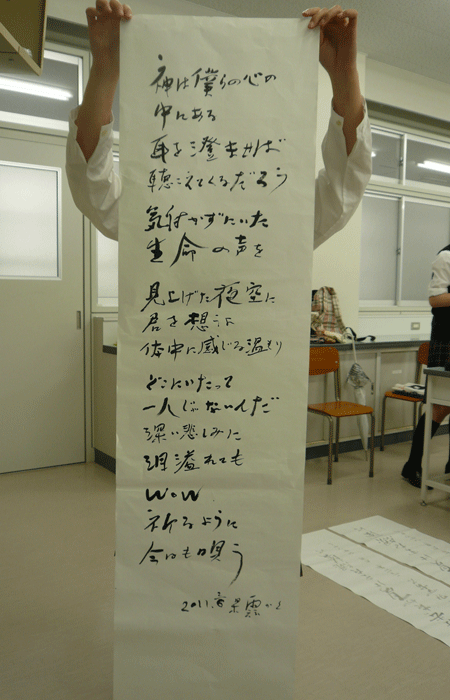 神は僕らの心の
中にある
耳を澄ませば
聴こえてくるだろう
気付かずにいた
生命の声を
見上げた夜空に
君を想うよ
体中に感じる温もり
どこにいたって
一人じゃないんだ
深い悲しみに
涙溢れても
WOW
祈るように
今日も唄う
2011.